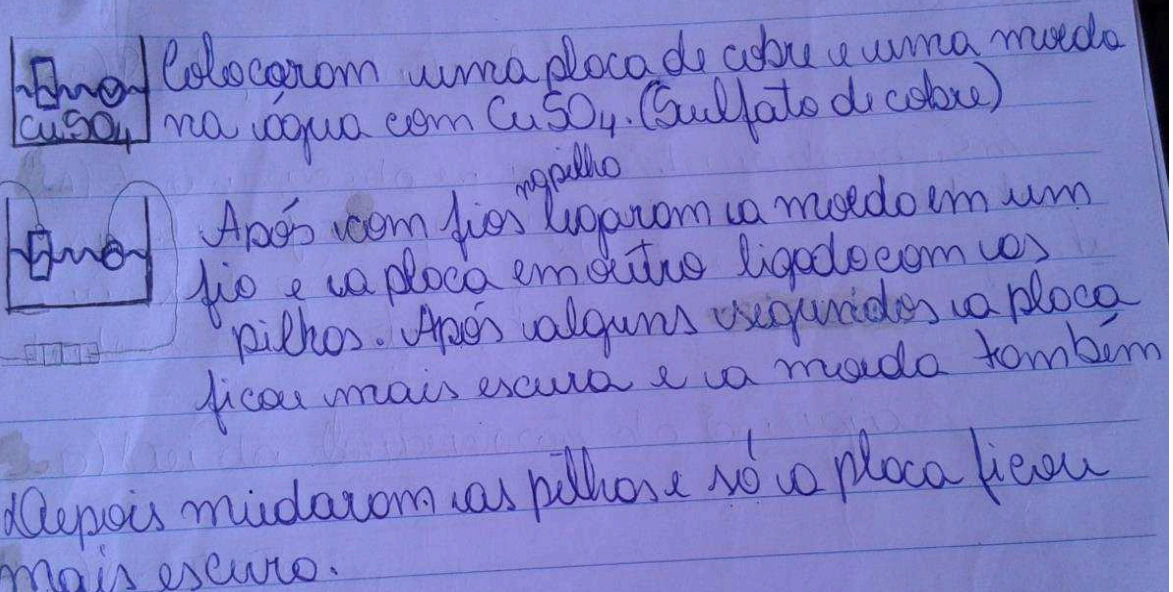 Colocarom uma placa de cobre e uma moeda
CuSO4 na água com CuSO4. (Sulfato de cobre)
na pilha
Após com fios ligarom a moeda em um
fio e a placa em outro ligado com as
pilhas. Após alguns segundos a placa
ficou mais escura e a moeda também
Depois mudarom as pilhas e só a placa ficou
mais escuro.